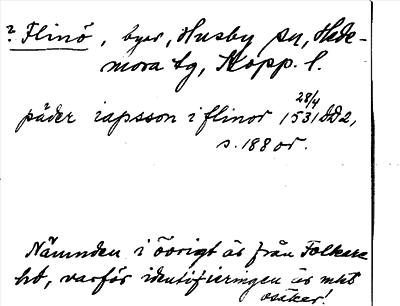 ? Flinö, byar, Husby sn, Hede-
mora tg, Kopp. l.
28/4
päder iapsson i flinor 1531 DD2,
s. 188 or.
Nämnden i övrigt är från Folkare
hd, varför identifieringen är mkt
osäker!